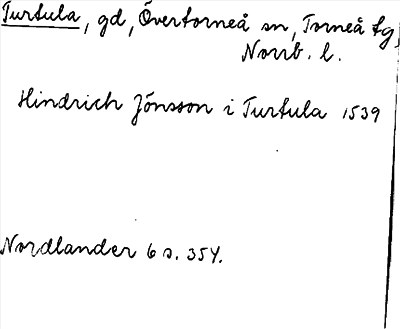 Turtula, gd, Övertorneå sn, Torneå tg,
Norrb. l.
Hindrich Jönsson i Turtula 1539
Nordlander 6 s. 354.